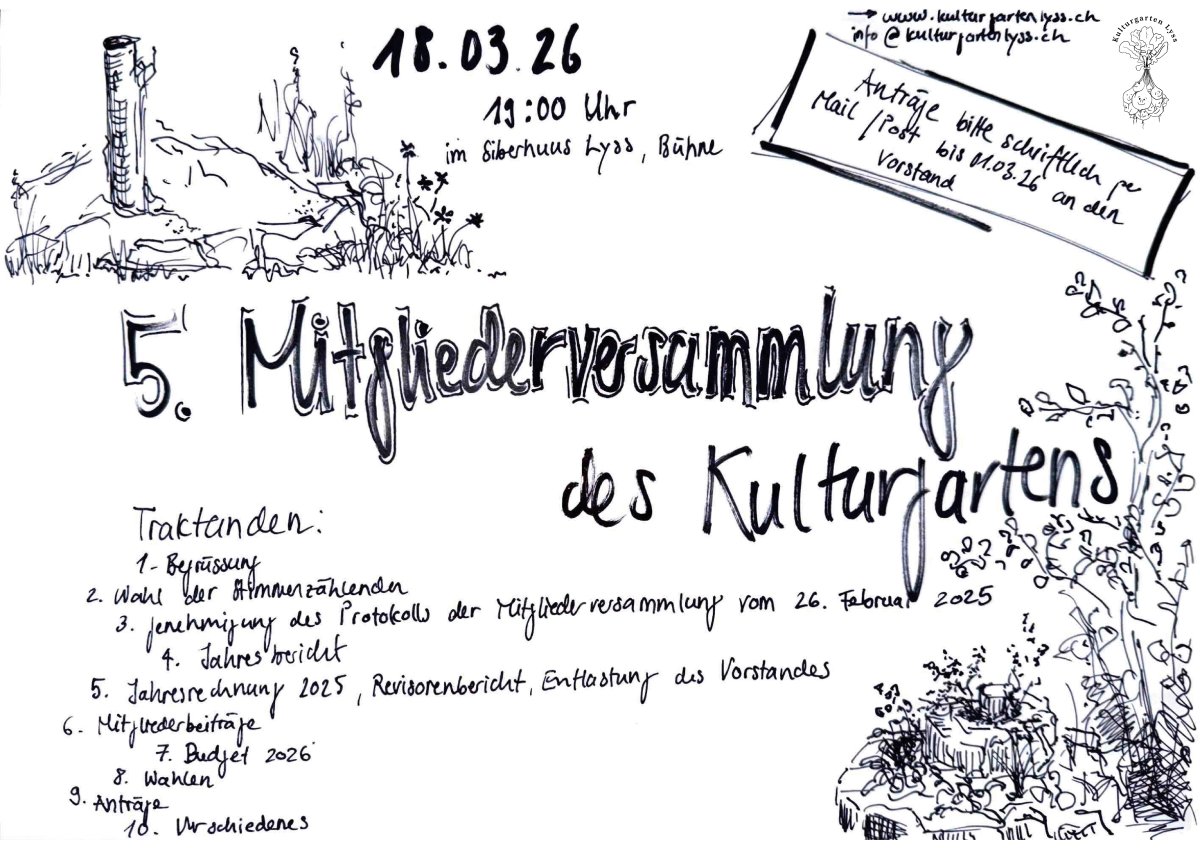 18.03.26
19:00 Uhr
im Siberhuus Lyss, Bühne
→ www.kulturgartenlyss.ch
info@kulturgartenlyss.ch
Kulturgarten Lyss
Anträge bitte schriftlich per
Mail/Post bis 01.03.26 an den
Vorstand
5. Mitgliederversammlung
des Kulturgartens
Traktanden:
1. Begrüssung
2. Wahl der Stimmenzählenden
3. Genehmigung des Protokolls der Mitgliederversammlung vom 26. Februar 2025
4. Jahresbericht
5. Jahresrechnung 2025, Revisorenbericht, Entlastung des Vorstandes
6. Mitgliederbeiträge
7. Budget 2026
8. Wahlen
9. Anträge
10. Verschiedenes